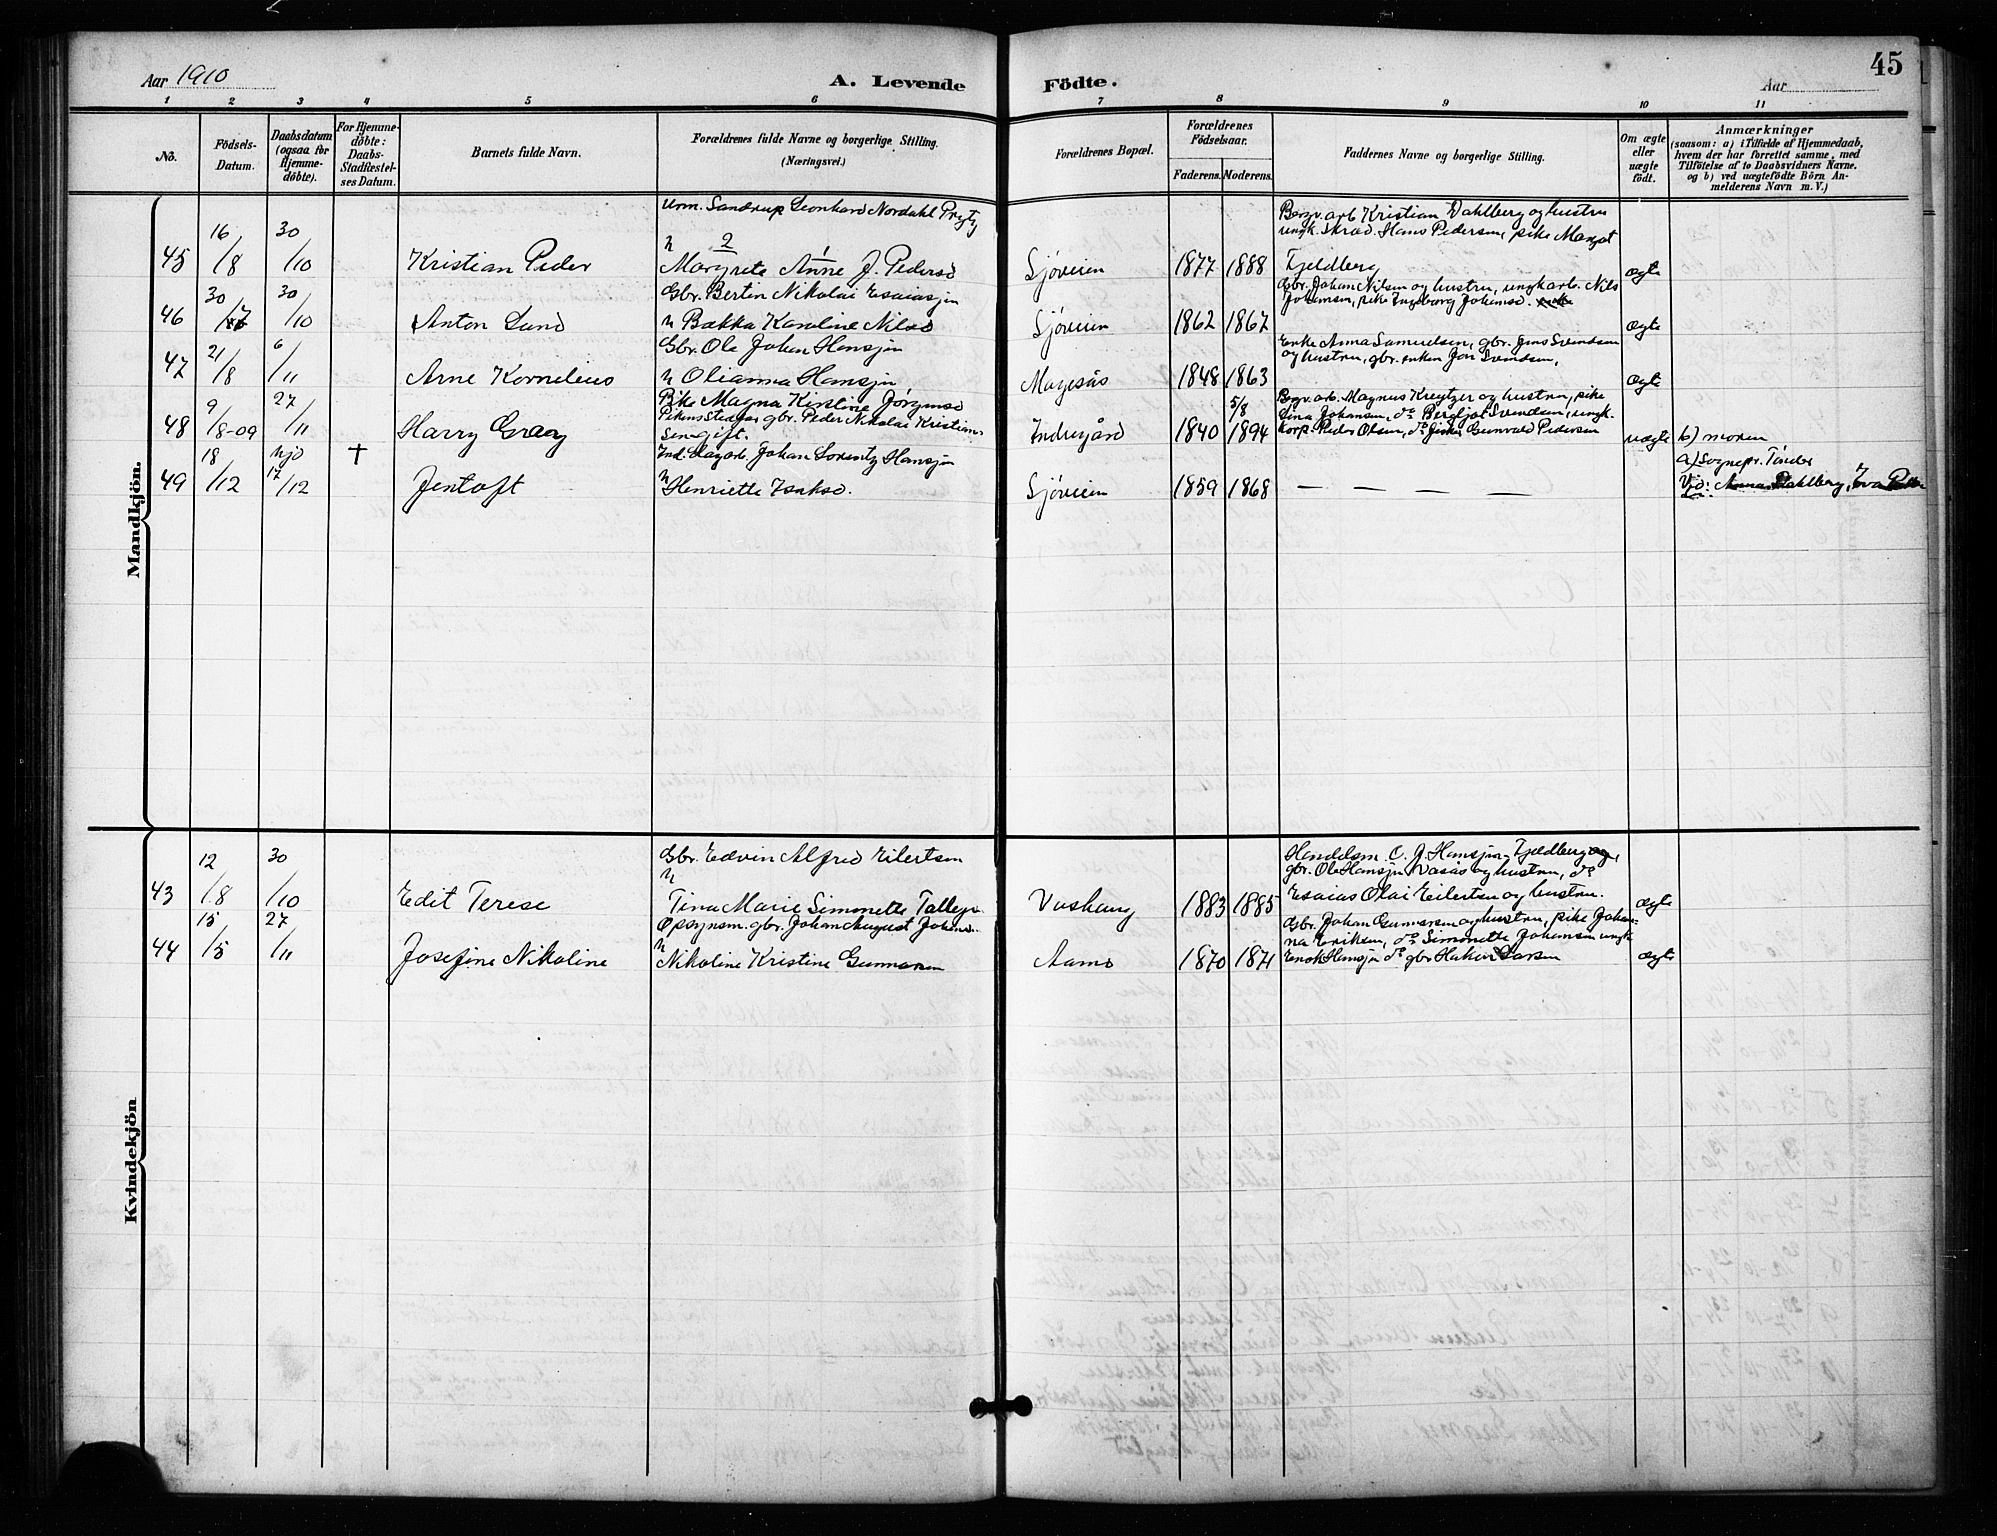 Aar 1910
A. Levende Födte.
Aar
45
1 2 3 4 5 6 7 8 9 10 11
No.
Födsels-
Datum.
Daabsdatum
(ogsaa for
Hjemme-
döbte).
For Hjemme-
döbte:
Daabs-
Stadfæstel-
ses Datum.
Barnets fulde Navn.
Forældrenes fulde Navne og borgerlige Stilling.
(Næringsvei.)
Forældrenes Bopæl.
Forældrenes
Födselsaar.
Faderens. Moderens.
Faddernes Navne og borgerlige Stilling.
Om ægte
eller
uægte
födt.
Anmærkninger
(saasom: a) i Tilfælde af Hjemmedaab,
hvem der har forrettet samme, med
Tilföielse af to Daabsvidners Navne.
og b) ved uægtefödte Börn An-
melderens Navn m. V.)
Mandkjön.
Urm. Sandrup Leonhard Nordahl
Bergv. arb Kristian Dahlberg og hustru
ungk. Skræd. Hans Pedersen, pike Margot
Fjeldberg
45 16/8 30/10 Kristian Peder
2
Margrete Anne J. Pedersd Sjöveien 1877 1888 ægte
Gbr. Bertin Nikolai Esaiasjen
Gbr. Johan Nilsen og hustru, ungkarb. Nils
Johansen, pike Ingeborg Johansd.
46 30/7 30/10 Anton Lund
Bakka Karoline Nilsd Sjöveien 1862 1867 ægte
Gbr. Ole Johan Hansjen
Enke Anna Samuelsen, gbr. Jens Svendsen
og hustru, gbr. enken Jon Svendsen,
47 21/8 6/11 Arne Kornelius
Olianna Hansjen, 1848 1863 ægte
Pike Magna Kirstine Jörgensd
Pikens Stedfar gbr. Peder Nikolai Kristian-
sen gift.
5/8
Bergv. arb. Magnus Kreytzer og hustru, pike
Lina Johansen, do Bergljot Svendsen, ungk.
korp. Peder Olsen, do fisker Gunvald Pedersen
48 9/8-09 27/11 Harry Graay Indregård 1840 1894 uægte b) moren
Ind. Dagarb. Johan Lorentz Hansjen
a) Sognepr. Tönder
49 18/12 hjd 17/12 † Jentoft
Henriette Isaksd. Sjöveien 1859 1868 — — — —
Vid: Anna Dahlberg, Eva
Kvindekjön
Gbr. Edvin Alfred Eilertsen
Handelsm. O. J. Hansjen Fjeldberg og,
gbr. Ole Hansjen Vasås og hustru, do
Esaias Olai Eilertsen og hustru.
43 12/8 30/10 Edit Terese
Tina Marie Simonette Vashaug 1883 1885 ægte
Opsynsm. gbr. Johan August
Gbr. Johan Gunnarsen og hustru, pike Johan-
na Eriksen, do Simonette Johansen ungk
Enok Hansjen do gbr Hakon Larsen
44 15/5 27/11 Josefine Nikoline
Nikoline Kristine Gunnarsen 1870 1871 ægte